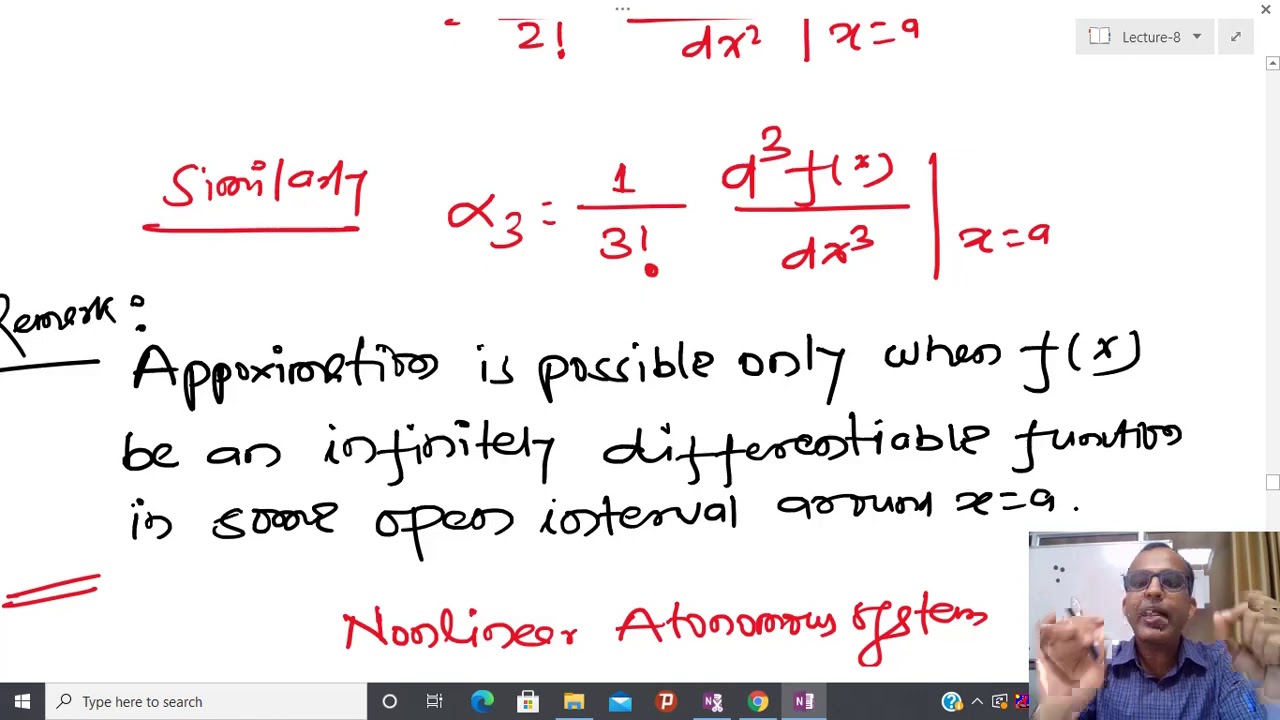 2! dx² | x=a
Lecture-8
Similarly α₃ = 1/3! d³f(x)/dx³ | x=a
Remark:
Appoximation is possible only when f(x)
be an infinitely differentiable function
in some open interval around x=a.
Nonlinear Atonomous system
Type here to search